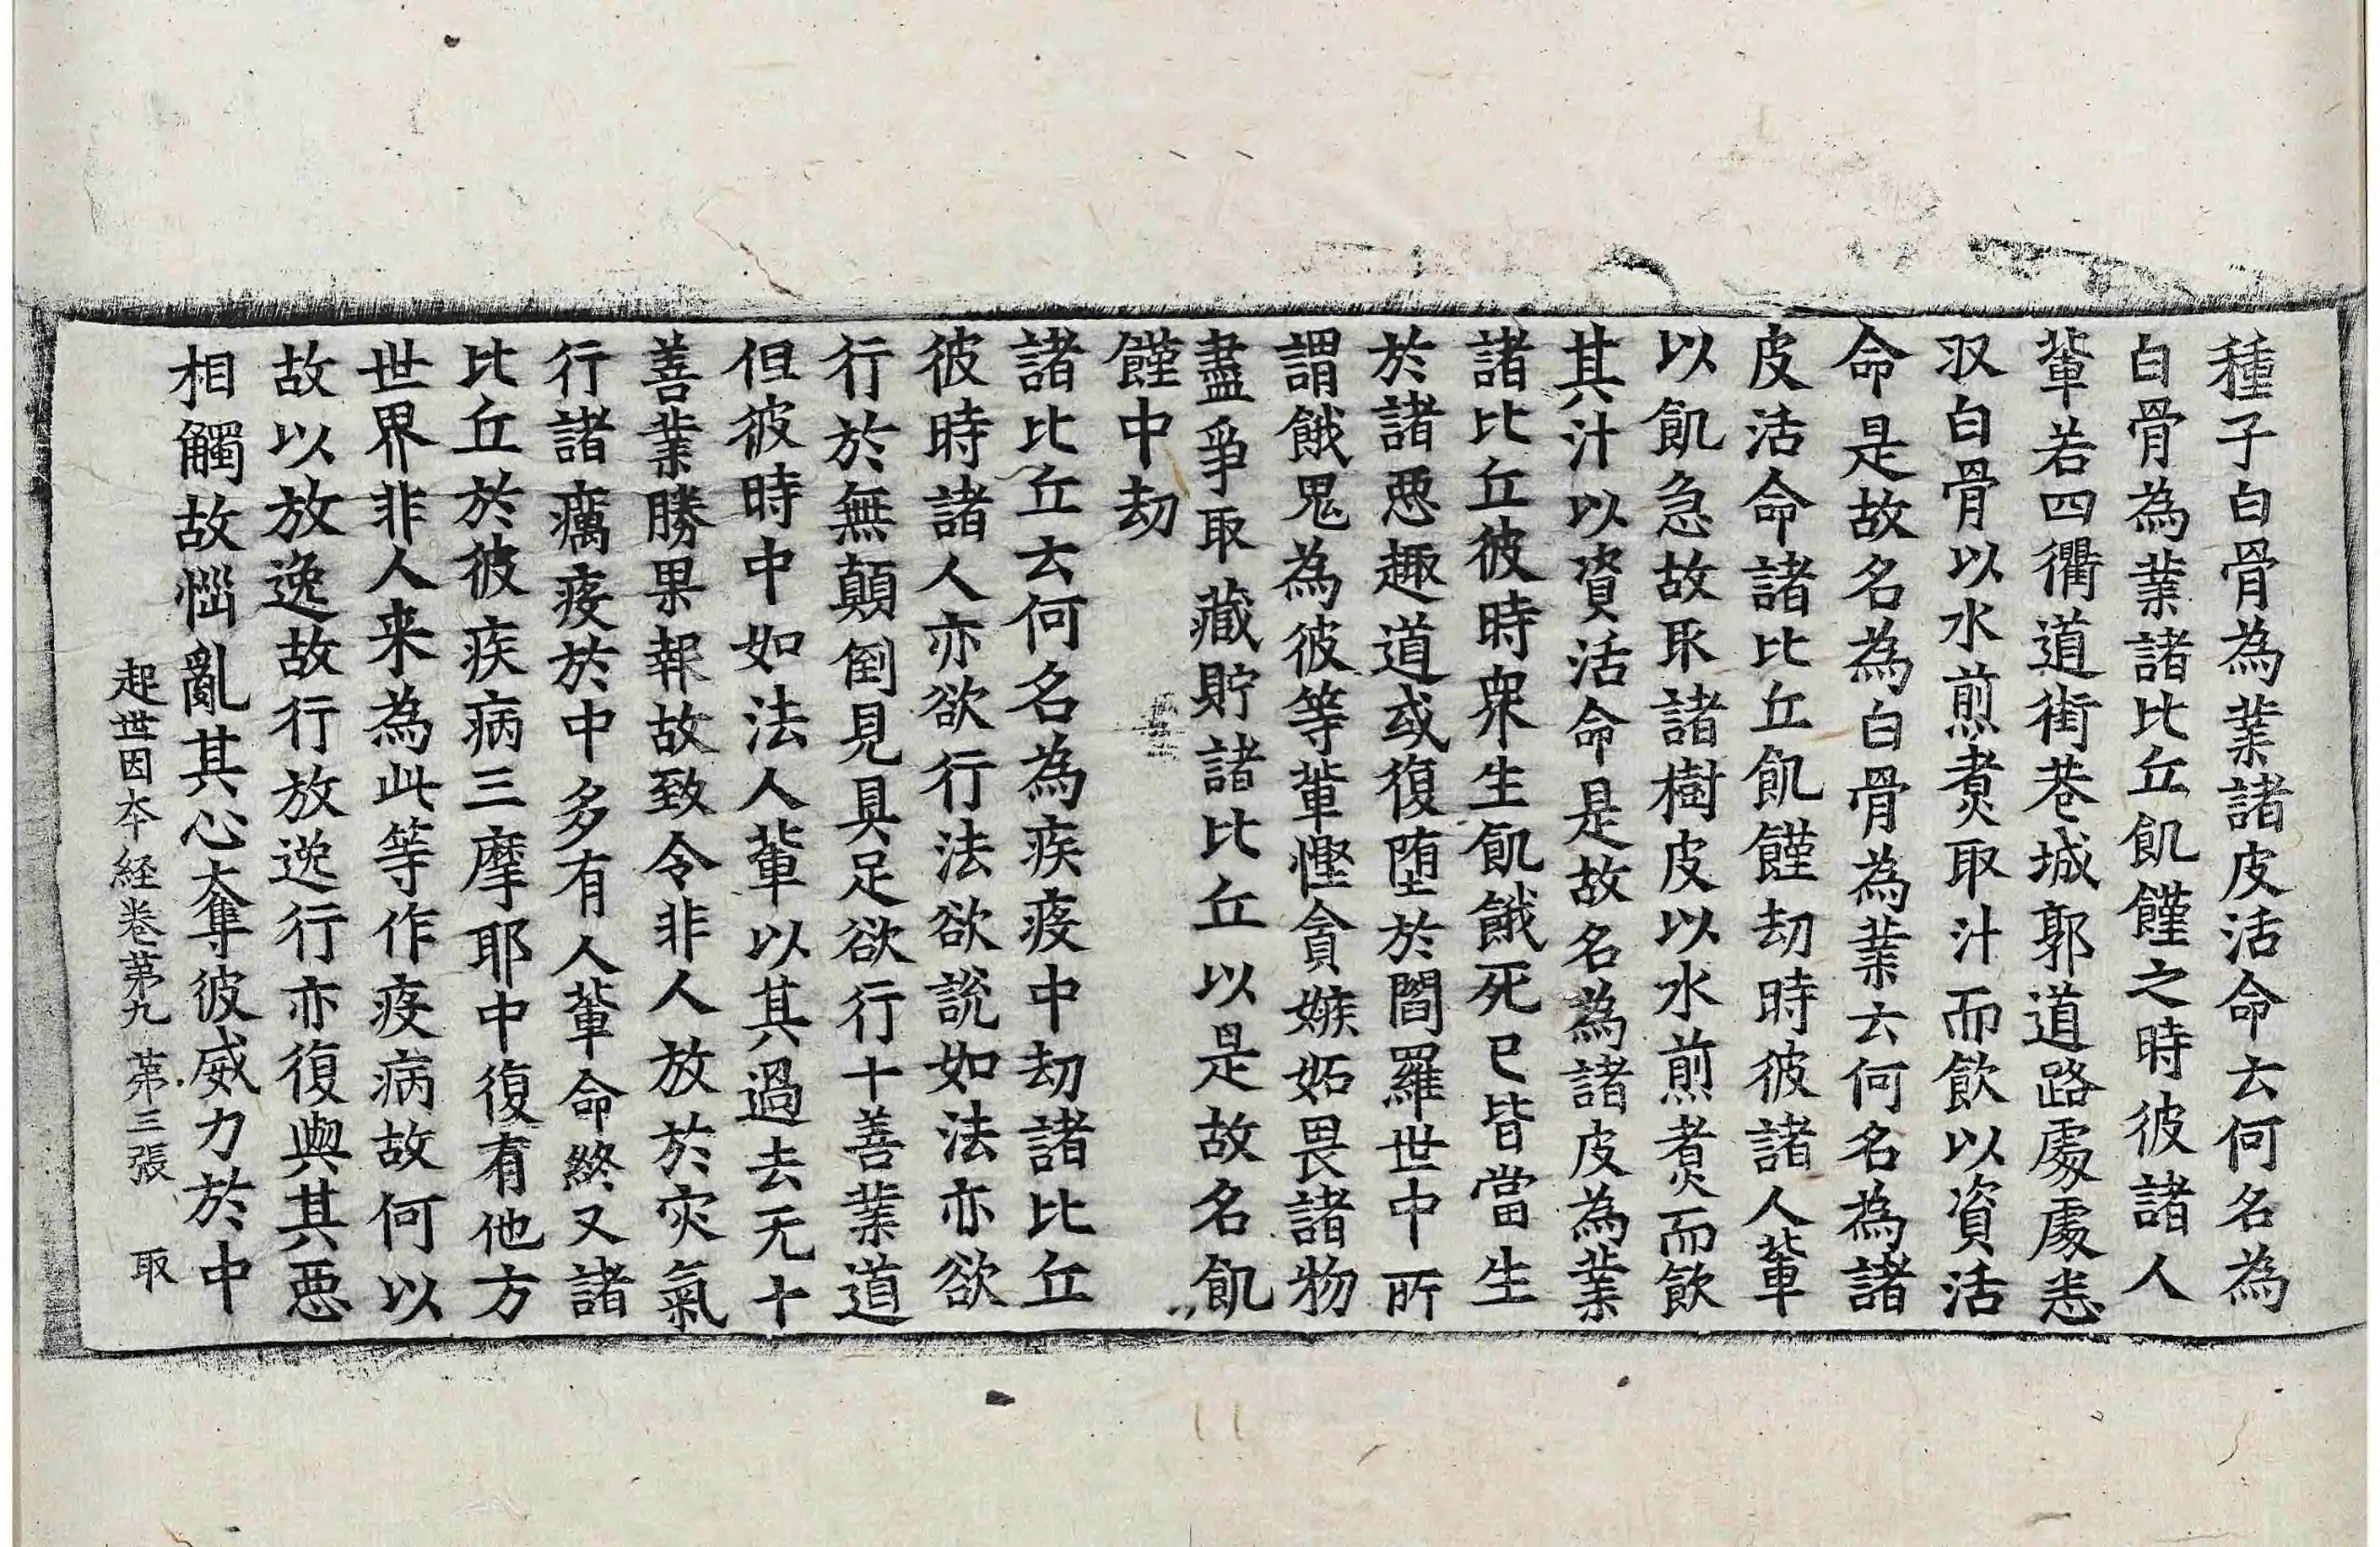 種子白骨為業諸皮活命云何名為
白骨為業諸比丘飢饉之時彼諸人
軰若四衢道街巷城郭道路處處悉
収白骨以水煎煮取汁而飲以資活
命是故名為白骨為業云何名為諸
皮活命諸比丘飢饉劫時彼諸人軰
以飢急故取諸樹皮以水煎煮而飲
其汁以資活命是故名為諸皮為業
諸比丘彼時衆生飢餓死已皆當生
於諸惡趣道或復堕於閻羅世中所
謂餓鬼為彼等軰慳貪嫉妬畏諸物
盡爭取藏貯諸比丘以是故名飢
饉中劫
諸比丘云何名為疾疫中劫諸比丘
彼時諸人亦欲行法欲說如法亦欲
行於無顛倒見具足欲行十善業道
但彼時中如法人軰以其過去无十
善業勝果報故致令非人放於灾氣
行諸癘疫於中多有人軰命終又諸
比丘於彼疾病三摩耶中復有他方
世界非人来為此等作疫病故何以
故以放逸故行放逸行亦復與其惡
相觸故惱亂其心奪彼威力於中
起世因本経卷苐九 苐三張 取